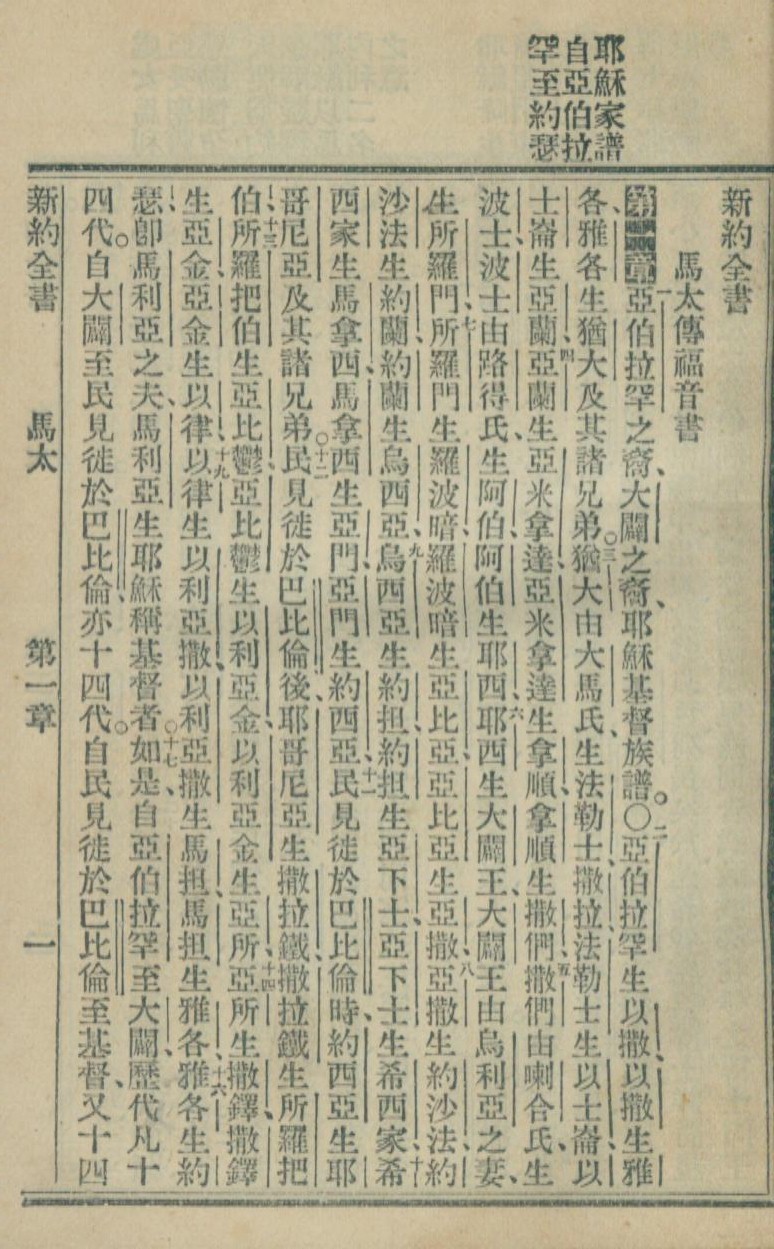 耶穌家譜
自亞伯拉
罕至約瑟
新約全書
馬太傳福音書
第一章一亞伯拉罕之裔、大闢之裔、耶穌基督族譜。〇二亞伯拉罕生以撒、以撒生雅
各、雅各生猶大及其諸兄弟。三猶大由大馬氏、生法勒士、撒拉、法勒士生以士崙、以
士崙生亞蘭、四亞蘭生亞米拿達、亞米拿達生拿順、拿順生撒們、五撒們由喇合氏、生
波士、波士由路得氏、生阿伯、阿伯生耶西、六耶西生大闢王、大闢王由烏利亞之妻、
生所羅門、七所羅門生羅波暗、羅波暗生亞比亞、亞比亞生亞撒、八亞撒生約沙法、約
沙法生約蘭、約蘭生烏西亞、九烏西亞生約担、約担生亞下士、亞下士生希西家、十希
西家生馬拿西、馬拿西生亞門、亞門生約西亞、十一民見徙於巴比倫時、約西亞生耶
哥尼亞及其諸兄弟。十二民見徙於巴比倫後、耶哥尼亞生撒拉鐵、撒拉鐵生所羅把
伯、十三所羅把伯生亞比鬱、亞比鬱生以利亞金、以利亞金生亞所、十四亞所生撒鐸、撒鐸
生亞金、亞金生以律、十九以律生以利亞撒、以利亞撒生馬担、馬担生雅各、十六雅各生約
瑟、卽馬利亞之夫、馬利亞生耶穌稱基督者。十七如是、自亞伯拉罕至大闢、歷代凡十
四代。自大闢至民見徙於巴比倫、亦十四代。自民見徙於巴比倫至基督、又十四
新約全書 馬太 第一章 一